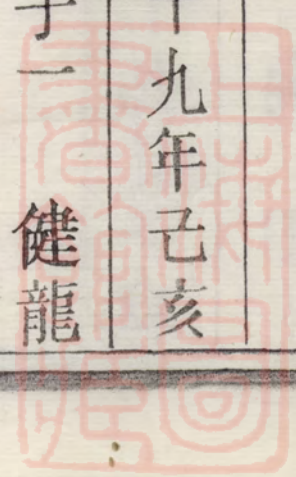 十九年己亥
子一　健龍